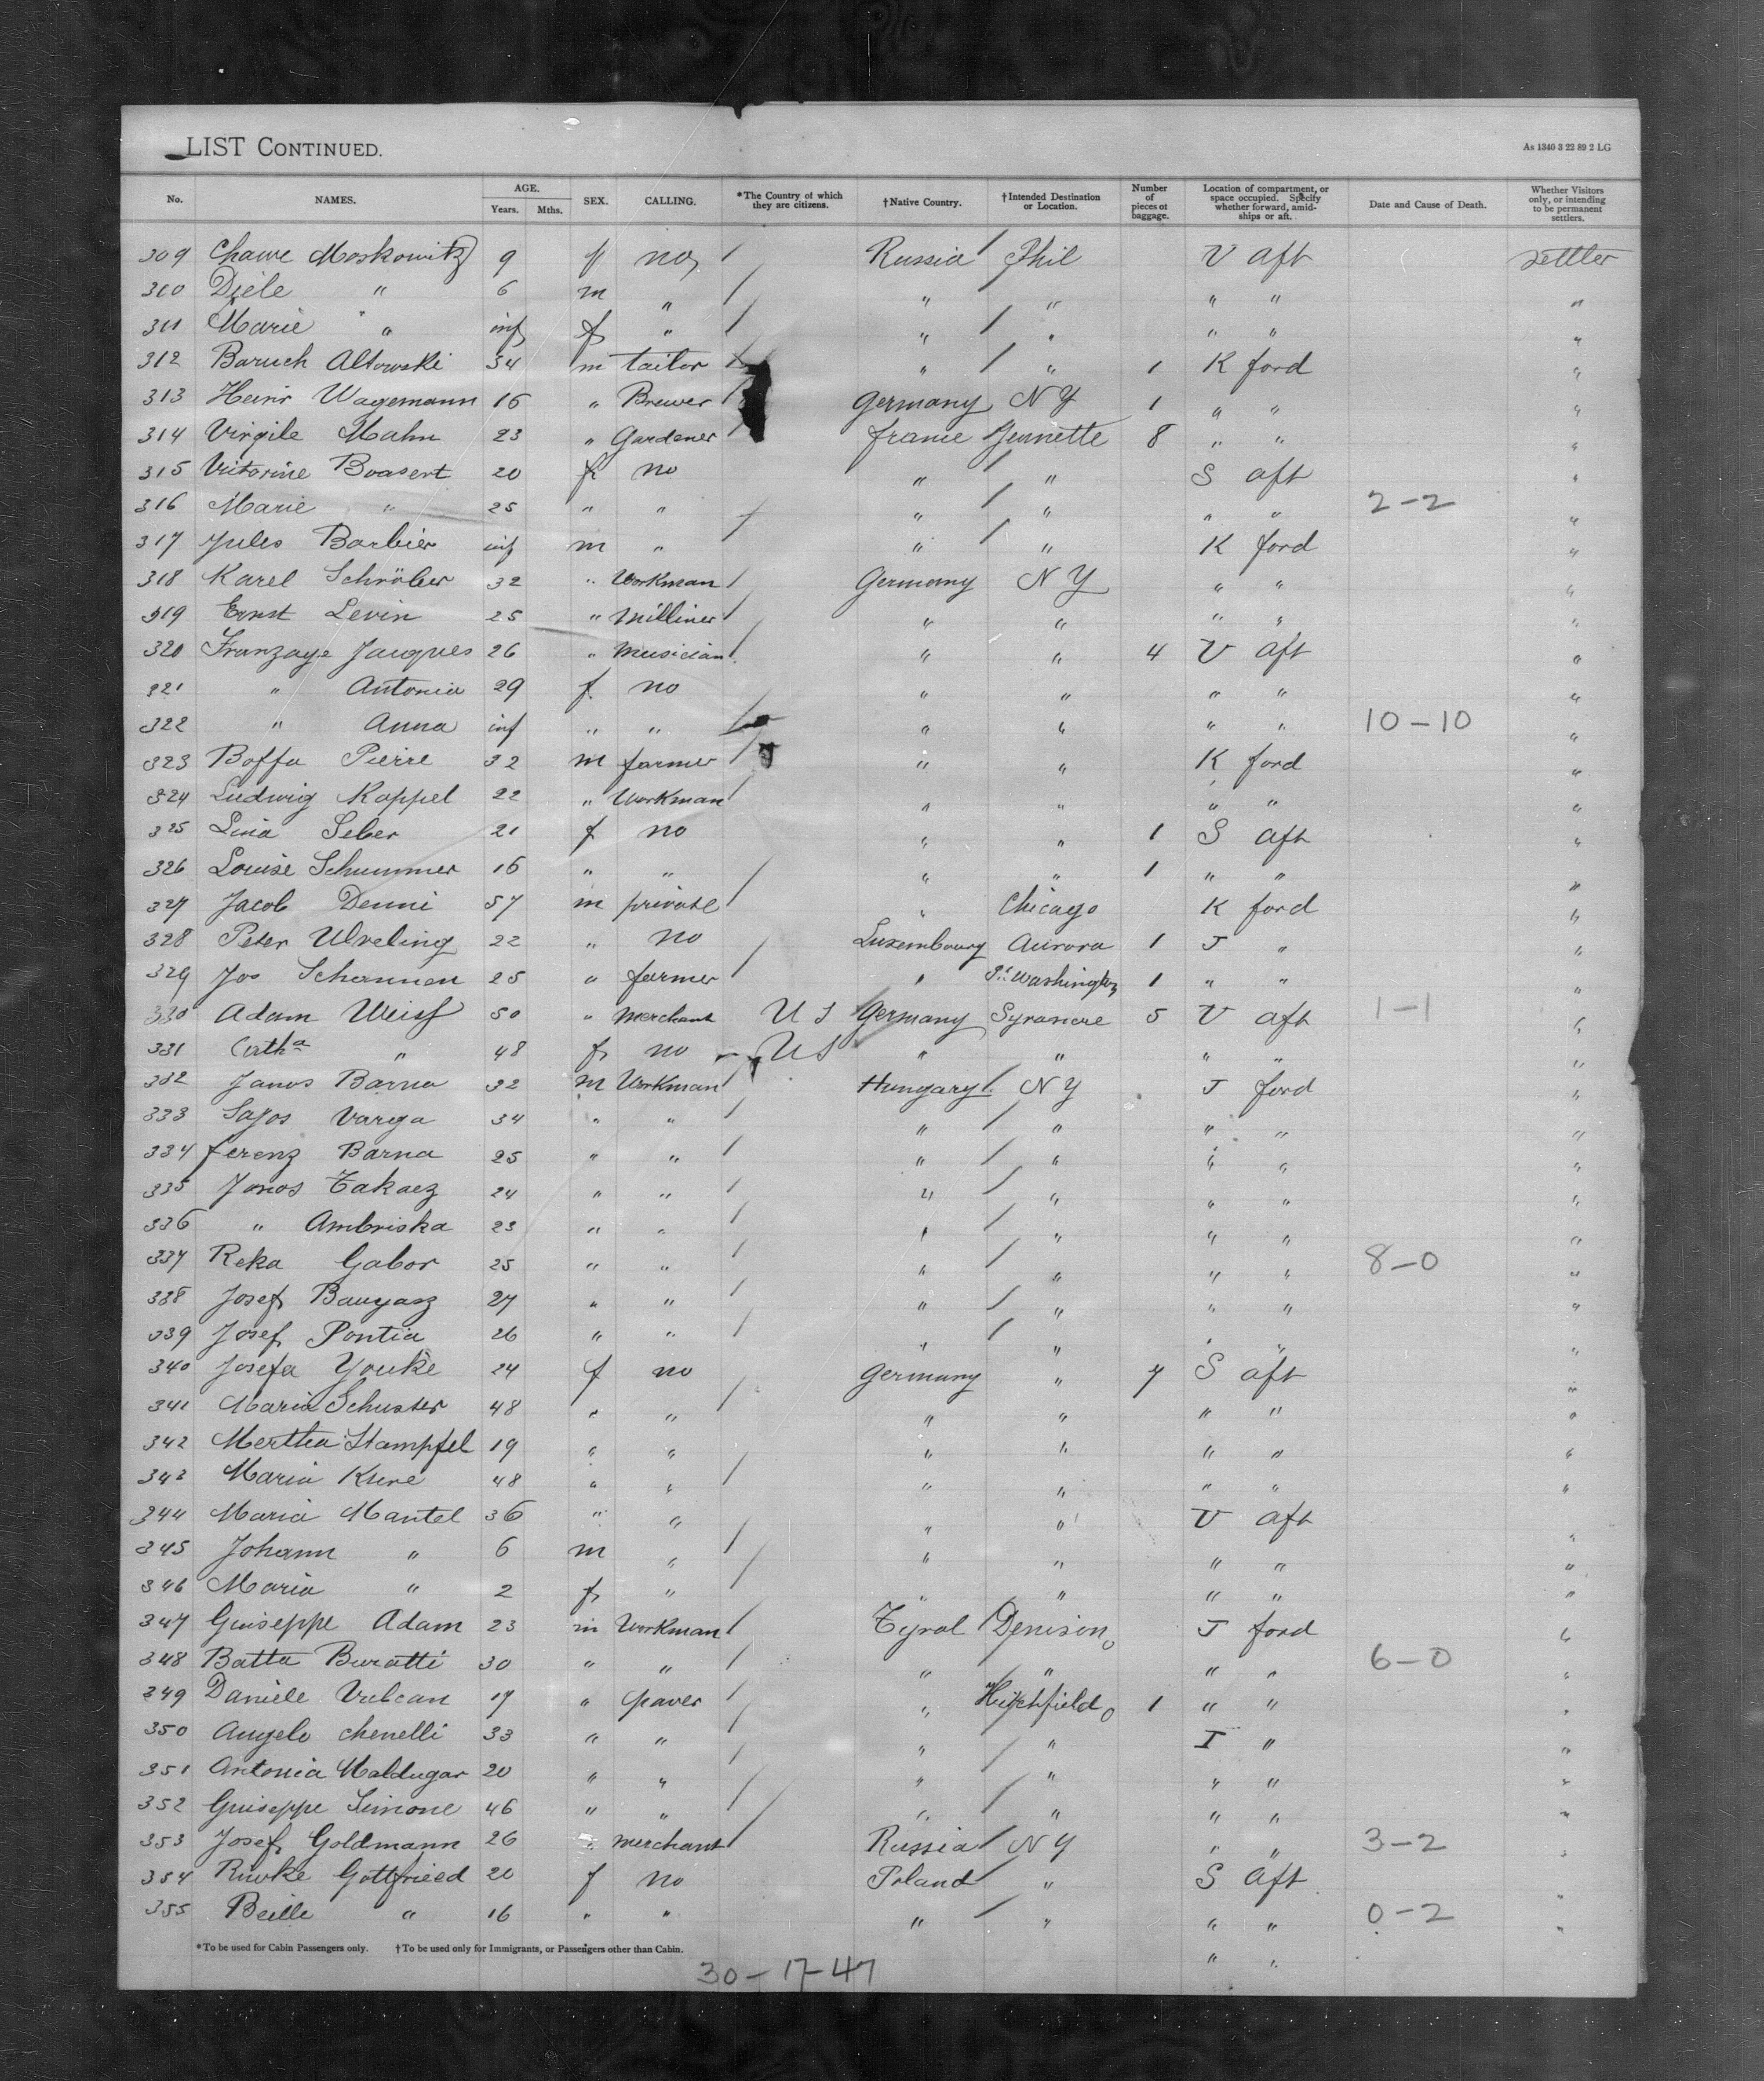 LIST CONTINUED.
As 1340 3 22 89 2 LG
No. NAMES. AGE. Years. Mths. SEX. CALLING. *The Country of which they are citizens. †Native Country. †Intended Destination or Location. Number of pieces of baggage. Location of compartment, or space occupied. Specify whether forward, amidships or aft. Date and Cause of Death. Whether Visitors only, or intending to be permanent settlers.
309 Chawe Moskowitz 9 f no / Russia / Phil V aft settler
310 Diele " 6 m " / " " " " "
311 Marie " inf f " / " / " " " "
312 Baruch Altowski 34 m tailor " / " 1 K ford "
313 Heinr Wagemann 16 " Brewer / Germany NY 1 " " "
314 Virgile Mahn 23 " Gardener / france Jeannette 8 " " "
315 Victorine Boasert 20 f no " / " S aft "
316 Marie " 25 " " " / " " " 2-2 "
317 Jules Barbier inf m " / " / " K ford "
318 Karel Schröber 32 " Workman / Germany NY " " "
319 Ernst Levin 25 " Milliner / " " " " "
320 Franzaye Jacques 26 " Musician / " " 4 V aft "
321 " Antonia 29 f no " " " " "
322 " Anna inf " " / " " " " 10-10 "
323 Boffa Pierre 32 m farmer / " " K ford "
324 Ludwig Kappel 22 " Workman / " " " " "
325 Lina Seber 21 f no " " 1 S aft "
326 Louise Schummer 16 " " " " 1 " " "
327 Jacob Denni 57 m private / " Chicago K ford "
328 Peter Ulveling 22 " no Luxembourg Aurora 1 J " "
329 Jos Schannen 25 " farmer / " Pt Washington 1 " " "
330 Adam Weiss 50 " Merchant U S Germany Syracuse 5 V aft 1-1 "
331 Catha " 48 f no U S " " " " "
332 Janos Barna 32 m Workman / Hungary / NY J ford "
333 Sajos Varga 34 " " / " / " " " "
334 ferenz Barna 25 " " / " / " " " "
335 Janos Takacz 24 " " / " / " " " "
336 " Ambriska 23 " " / " / " " " "
337 Reka Gabor 25 " " / " / " " " 8-0 "
338 Josef Banyasz 27 " " / " / " " " "
339 Josef Pontia 26 " " / " / " " " "
340 Josefa Youke 24 f no Germany " 7 S aft "
341 Maria Schuster 48 " " / " " " " "
342 Mertha Stampfel 19 " " " " " " "
343 Maria Kure 48 " " / " " " " "
344 Maria Mantel 36 " " " " V aft
345 Johann " 6 m " / " " " " "
346 Maria " 2 f " / " " " " "
347 Guiseppe Adam 23 m Workman / Tyrol / Denison J ford "
348 Batta Buratti 30 " " / " / " " " 6-0 "
349 Daniele Vulcan 17 " paver / " Hitchfield 1 " " "
350 Angelo Chenelli 33 " " / " / " I " "
351 Antonia Maldugar 20 " " / " / " " " "
352 Guiseppe Simone 46 " " / " / " " " "
353 Josef Goldmann 26 " merchant / Russia / NY " " 3-2 "
354 Riwke Gottfried 20 f no Poland / " S aft "
355 Beille " 16 " " " / " " " 0-2 "
*To be used for Cabin Passengers only. †To be used only for Immigrants, or Passengers other than Cabin.
" "
30-17-47